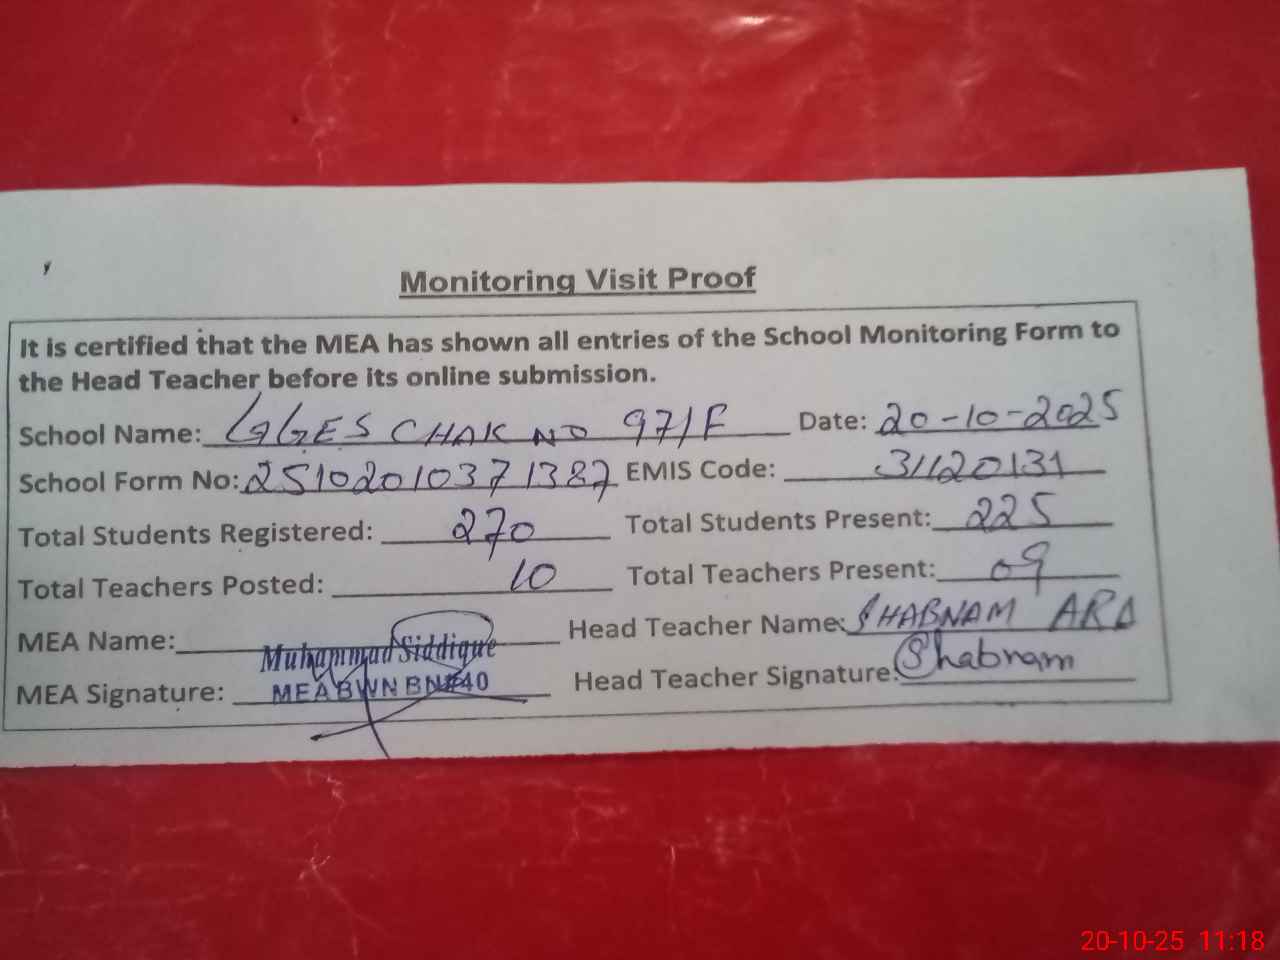 Monitoring Visit Proof
It is certified that the MEA has shown all entries of the School Monitoring Form to
the Head Teacher before its online submission.
School Name: GGES CHAK NO 97/F Date: 20-10-2025
School Form No: 2510201037 1387 EMIS Code: 31120131
Total Students Registered: 270 Total Students Present: 225
Total Teachers Posted: 10 Total Teachers Present: 09
MEA Name: Muhammad Siddique Head Teacher Name: SHABNAM ARA
MEA Signature: MEA BWN BN#40 Head Teacher Signature: Shabnam
20-10-25 11:18